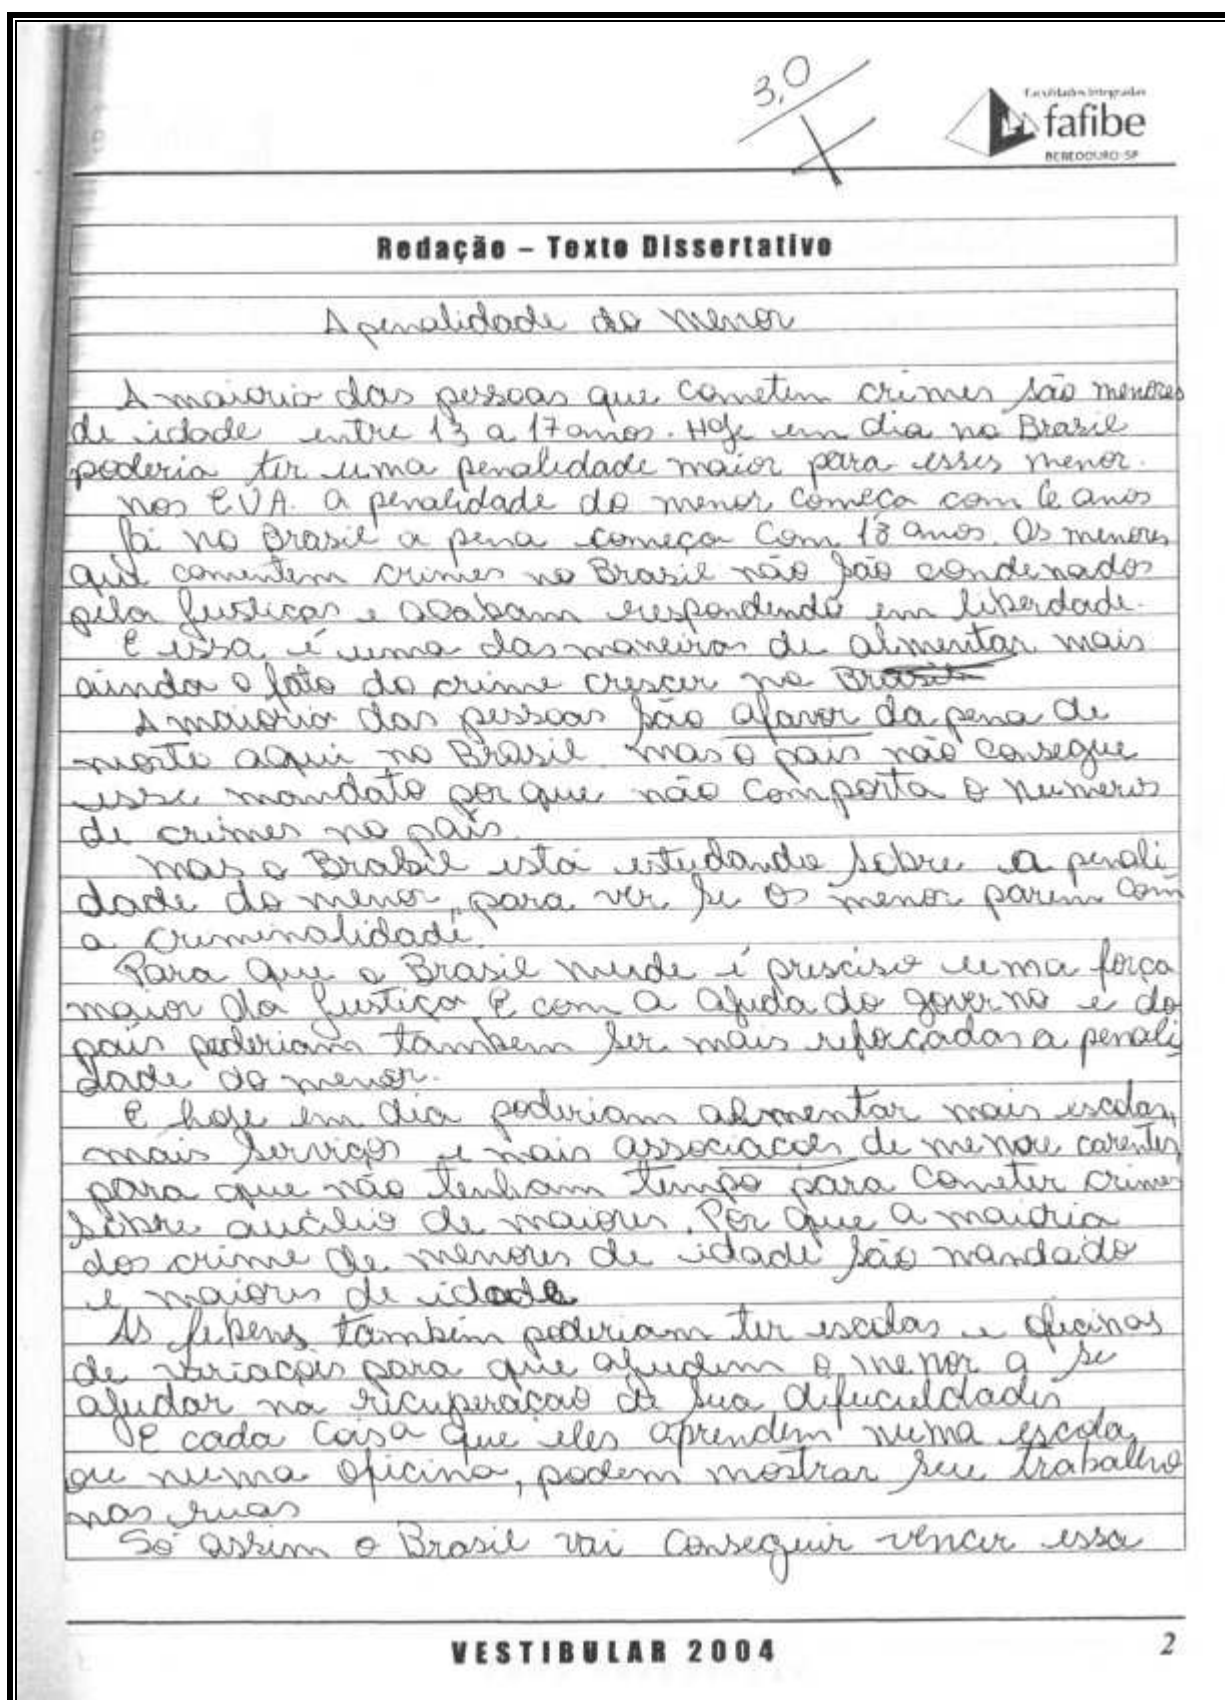 3,0
Faculdades Integradas
fafibe
BEBEDOURO-SP
Redação – Texto Dissertativo
A penalidade do menor
A maioria das pessoas que cometem crimes são menores
de idade entre 13 a 17 anos. Hoje em dia no Brasil
poderia ter uma penalidade maior para esses menor.
nos EUA. a penalidade do menor começa com anos
já no Brasil a pena começa com 18 anos. Os menores
que comentem crimes no Brasil não são condenados
pela justiças e acabam respondendo em liberdade.
E essa é uma das maneiras de almentar mais
ainda o fato do crime crescer no Brasil
A maioria das pessoas são afavor da pena de
morte aqui no Brasil mas o país não consegue
esse mandato por que não comporta o numeros
de crimes no país.
mas o Brasil está estudando sobre a penali
dade do menor, para ver se os menor parem com
a criminalidade.
Para que o Brasil mude é presciso uma força
maior da justiça e com a ajuda do governo e do
país poderiam também ser mais reforçadas a penali
dade do menor.
E hoje em dia poderiam almentar mais escolas,
mais serviços e mais associacões de menore carentes,
para que não tenham tempo para cometer crimes
sobre aucilio de maiores. Por que a maioria
dos crime de menores de idade são mandado
e maiores de idade
As febens também poderiam ter escolas e oficinas
de variações para que ajudem o menor a se
ajudar na recuperacão de sua dificuldades
E cada coisa que eles aprendem numa escola,
ou numa oficina, podem mostrar seu trabalho
nas ruas
Só assim o Brasil vai conseguir vencer essa
VESTIBULAR 2004
2